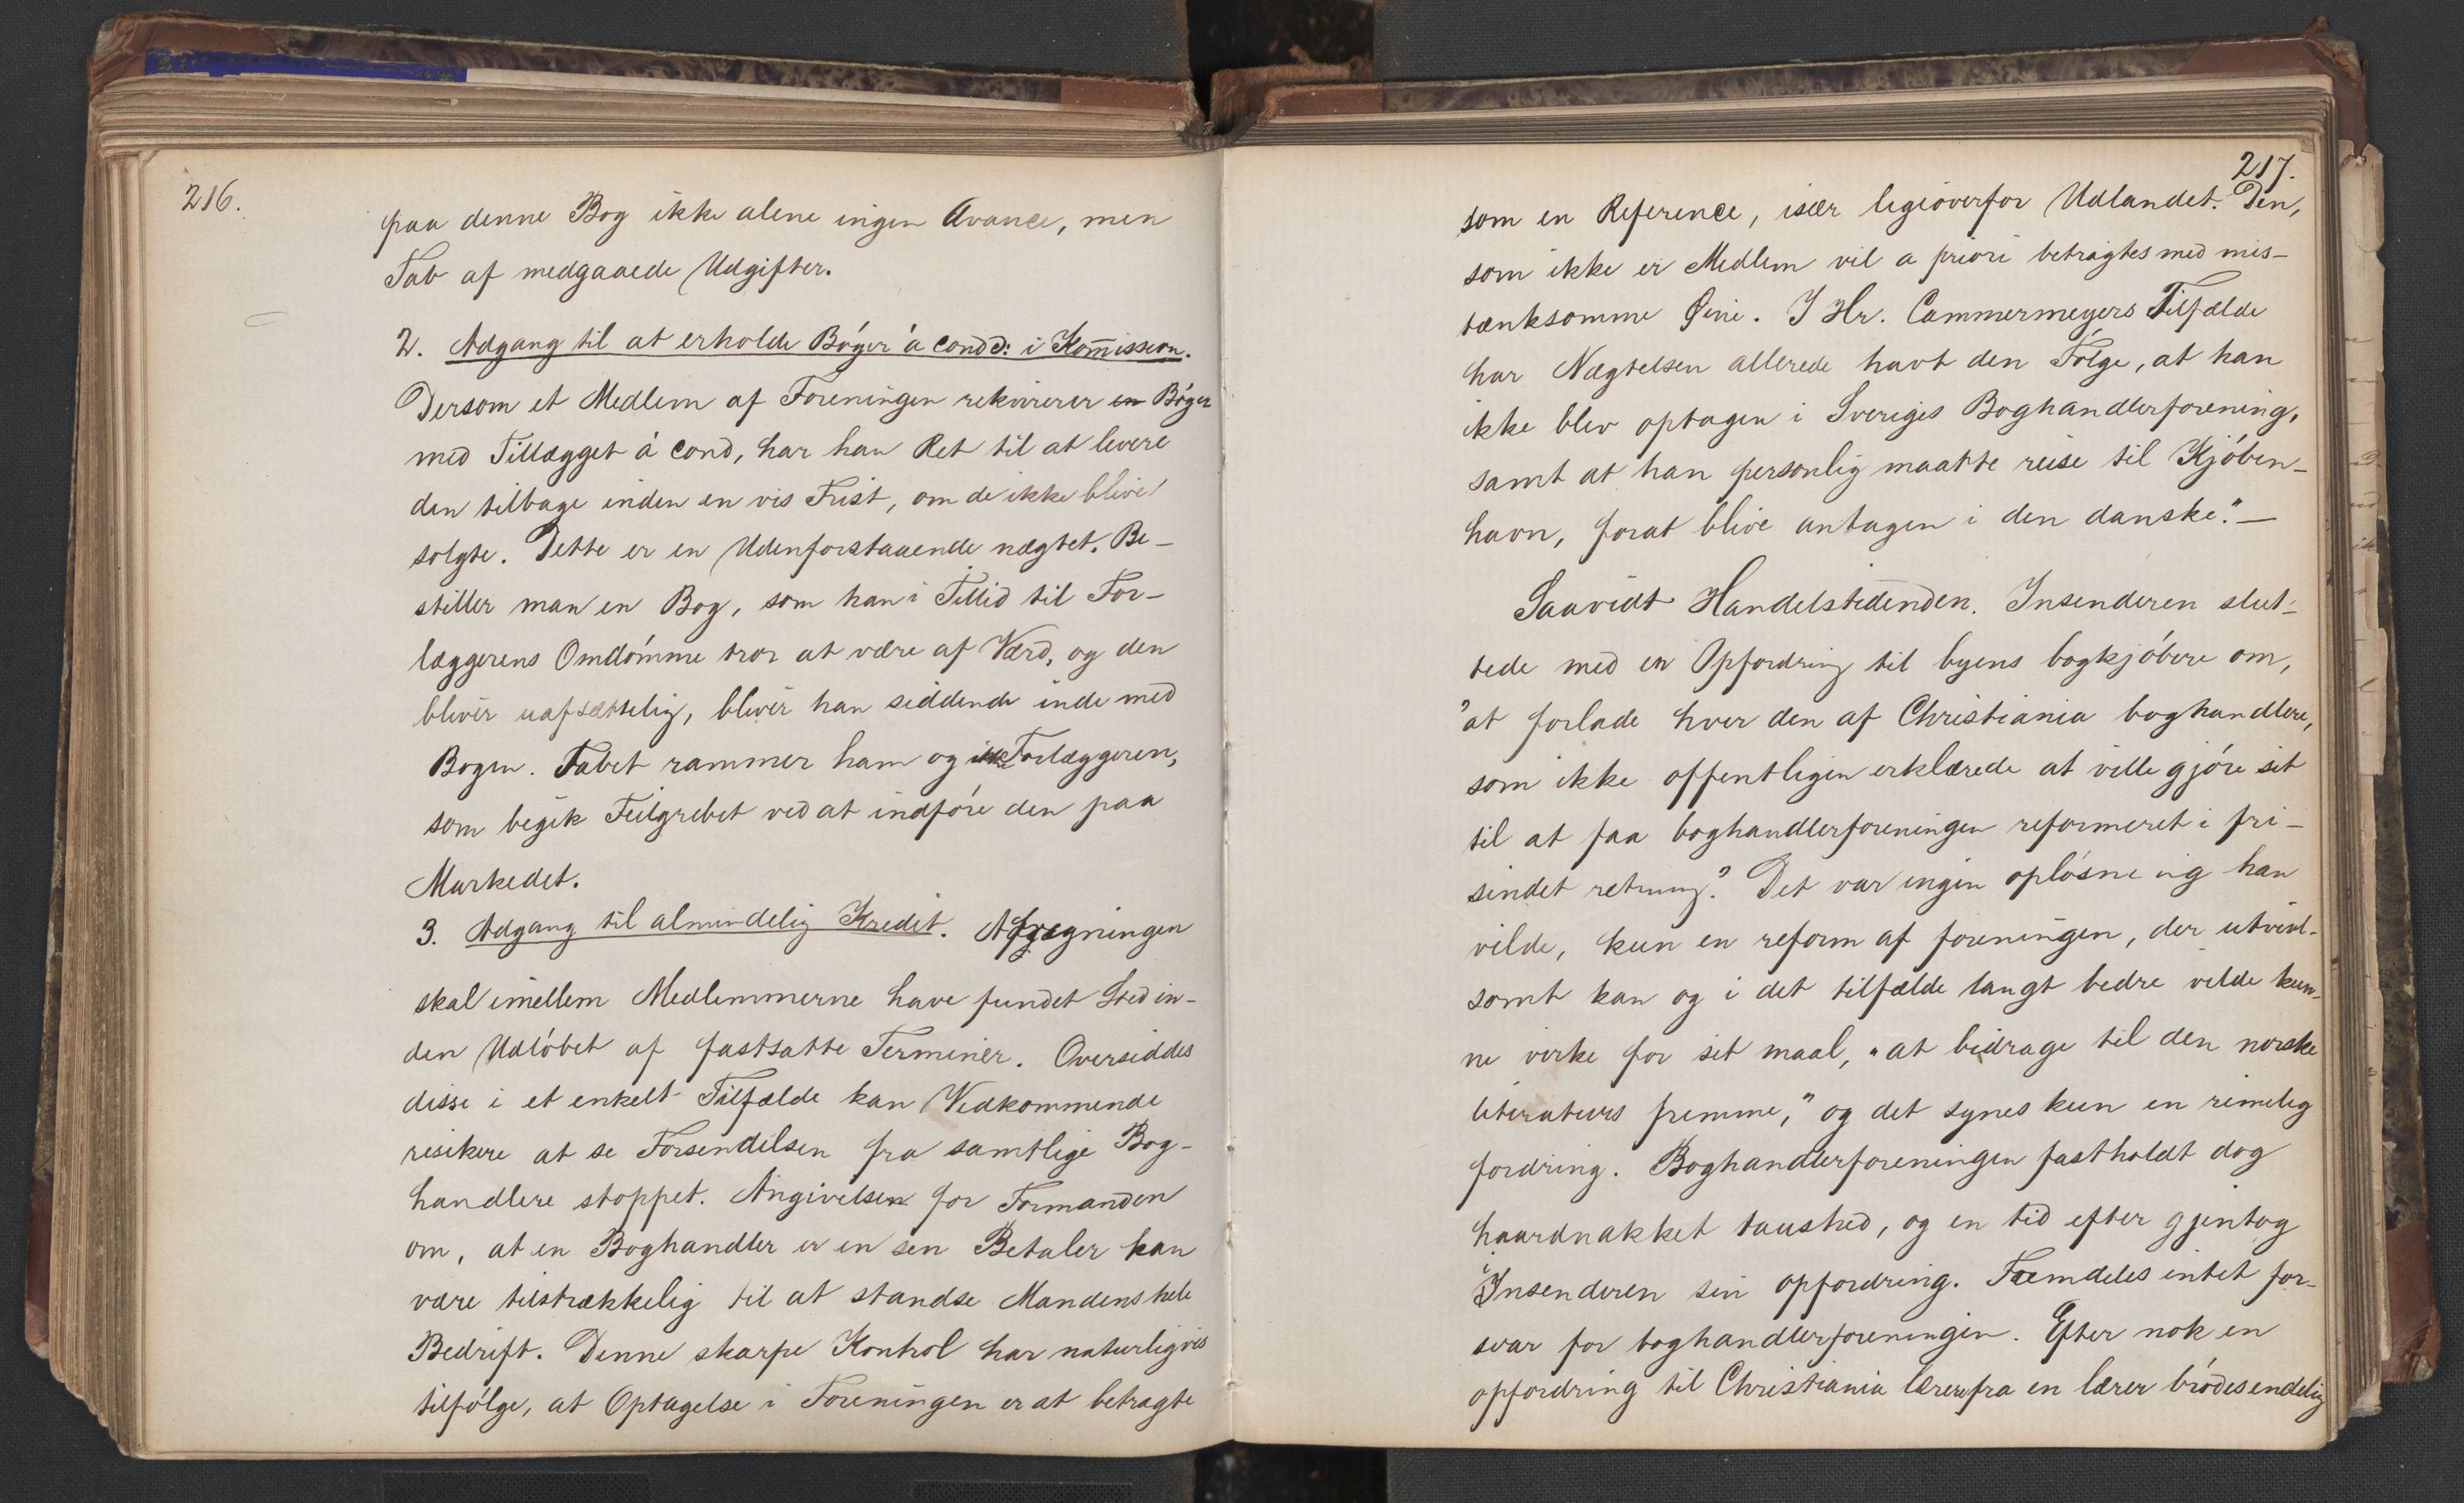 216.
paa denne Bog ikke alene ingen Avance, men
Tab af medgaaede Udgifter.
2. Adgang til at erholde Bøger à cond ɔ: i Kom̅ission.
Dersom et Medlem af Foreningen rekvirerer en Bøger
med Tillægget à cond, har han Ret til at levere
den tilbage inden en vis Frist, om de ikke blive
solgte. Dette er en Udenforstaaende nægtet. Be-
stiller man en Bog, som han i Tillid til For-
læggerens Omdømme tror at være af Værd, og den
bliver uafsættelig, bliver han siddende inde med
Bogen. Tabet rammer ham og ikke Forlæggeren,
som begik Feilgrebet ved at indføre den paa
Markedet.
3. Adgang til almindelig Kredit. Afregningen
skal imellem Medlemmerne have fundet Sted in-
den Udløbet af fastsatte Terminer. Oversiddes
disse i et enkelt Tilfælde kan Vedkommende
risikere at se Forsendelsen fra samtlige Bog-
handlere stoppet. Angivelsen for Formanden
om, at en Boghandler er en sen Betaler kan
være tilstrækkelig til at standse Mandens hele
Bedrift. Denne skarpe Kontrol har naturligvis
tilfølge, at Optagelse i Foreningen er at betragte
217.
som en Reference, især ligeoverfor Udlandet. Den,
som ikke er Medlem vil a priori betragtes med mis-
tænksomme Øine. I Hr. Cammermeyers Tilfælde
har Nægtelsen allerede havt den Følge, at han
ikke blev optagen i Sveriges Boghandlerforening,
samt at han personlig maatte reise til Kjøben-
havn, forat blive antagen i den danske." —
Saavidt Handelstidenden. Insenderen slut-
tede med en Opfordring til byens bogkjøbere om,
"at forlade hver den af Christiania boghandlere,
som ikke offentligen erklærede at ville gjøre sit
til at faa boghandlerforeningen reformeret i fri-
sindet retning". Det var ingen opløsning han
vilde, kun en reform af foreningen, der utvivl-
somt kan og i det tilfælde langt bedre vilde kun-
ne virke for sit maal, "at bidrage til den norske
literaturs fremme," og det synes kun en rimelig
fordring. Boghandlerforeningen fastholdt dog
haardnakket taushed, og en tid efter gjentog
Insenderen sin opfordring. Fremdeles intet for-
svar for boghandlerforeningen. Efter nok en
opfordring til Christiania lærere fra en lærer brødes endelig